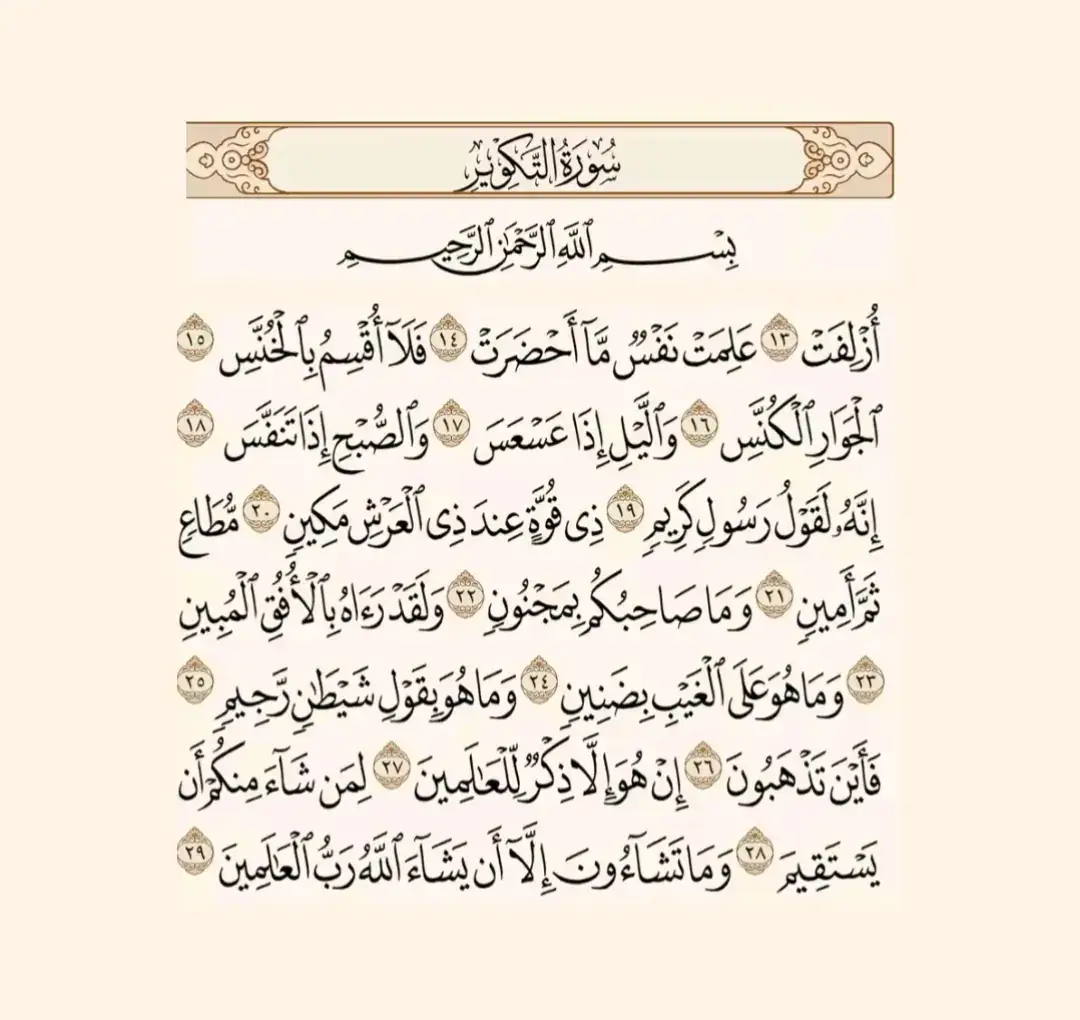 سُورَةُ التَّكْوِيرِ
بِسْمِ ٱللَّهِ ٱلرَّحْمَٰنِ ٱلرَّحِيمِ
أُزْلِفَتْ ١٣ عَلِمَتْ نَفْسٌ مَّآ أَحْضَرَتْ ١٤ فَلَآ أُقْسِمُ بِٱلْخُنَّسِ ١٥
ٱلْجَوَارِ ٱلْكُنَّسِ ١٦ وَٱلَّيْلِ إِذَا عَسْعَسَ ١٧ وَٱلصُّبْحِ إِذَا تَنَفَّسَ ١٨
إِنَّهُۥ لَقَوْلُ رَسُولٍ كَرِيمٍ ١٩ ذِى قُوَّةٍ عِندَ ذِى ٱلْعَرْشِ مَكِينٍ ٢٠ مُّطَاعٍ
ثَمَّ أَمِينٍ ٢١ وَمَا صَاحِبُكُم بِمَجْنُونٍ ٢٢ وَلَقَدْ رَءَاهُ بِٱلْأُفُقِ ٱلْمُبِينِ
٢٣ وَمَا هُوَ عَلَى ٱلْغَيْبِ بِضَنِينٍ ٢٤ وَمَا هُوَ بِقَوْلِ شَيْطَٰنٍ رَّجِيمٍ ٢٥
فَأَيْنَ تَذْهَبُونَ ٢٦ إِنْ هُوَ إِلَّا ذِكْرٌ لِّلْعَٰلَمِينَ ٢٧ لِمَن شَآءَ مِنكُمْ أَن
يَسْتَقِيمَ ٢٨ وَمَا تَشَآءُونَ إِلَّآ أَن يَشَآءَ ٱللَّهُ رَبُّ ٱلْعَٰلَمِينَ ٢٩